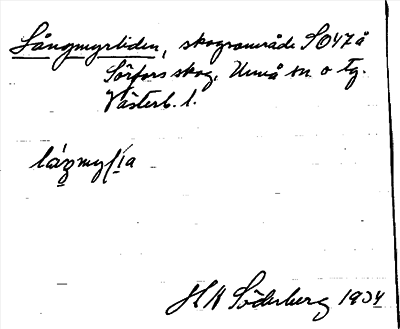 Långmyrliden, skogsområde SO 47 å
Sörfors skog, Umeå sn. o tg.
Västerb. l.
H N Söderberg 1934